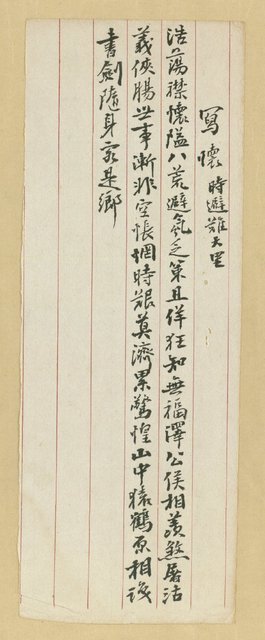 寫懷 時避難大里
浩蕩襟懷隘八荒避氛乏策且佯狂知無福澤公侯相羨煞屠沽
義俠腸世事漸非空悵惘時艱莫濟累驚惶山中猿鶴原相識
書劍隨身處是鄉